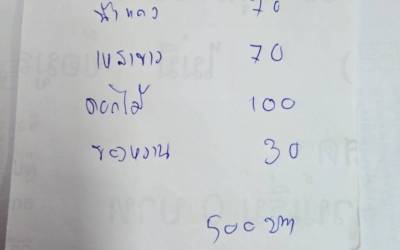 น้ำแดง 70
เหล้าขาว 70
ดอกไม้ 100
ของหวาน 30
500 บาท